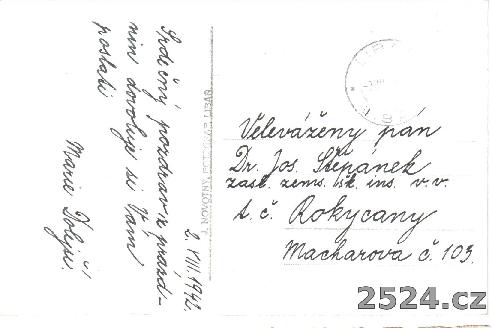 Srdečný pozdrav z prázd-
nin dovoluje si Vám
poslati
Marie
2. VIII. 1942.
J. NOVOTNÝ FOTOGRAF LIBÁŇ
Velevážený pán
Dr. Jos. Štěpánek
zast. zems. šk. ins. v. v.
t. č. Rokycany
Macharova č. 103.
2524.cz